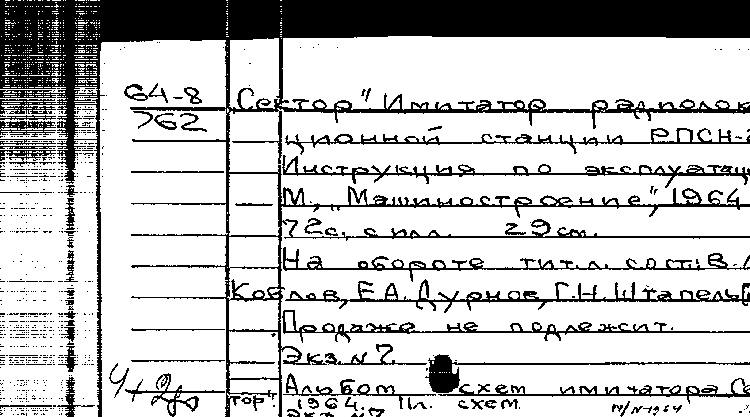 64-8
762
Сектор" Имитатор радиолок
ционной станции РПСН-2
Инструкция по эксплуатац
М., "Машиностроение", 1964
72с. с илл. 29 см.
На обороте тит.л. сост: В.А
Козлов, Е.А. Дурнов, Г.Н. Штапель
Продаже не подлежит.
Экз. N 7.
Альбом схем имитатора Се
тор" 1964. 11л. схем.